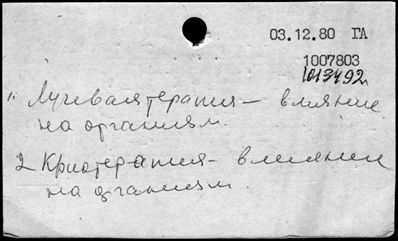 03.12.80 ГА
1007803
1013492
1. Лучевая терапия — влияние
на организм.
2 Криотерапия - влияние
на организм.